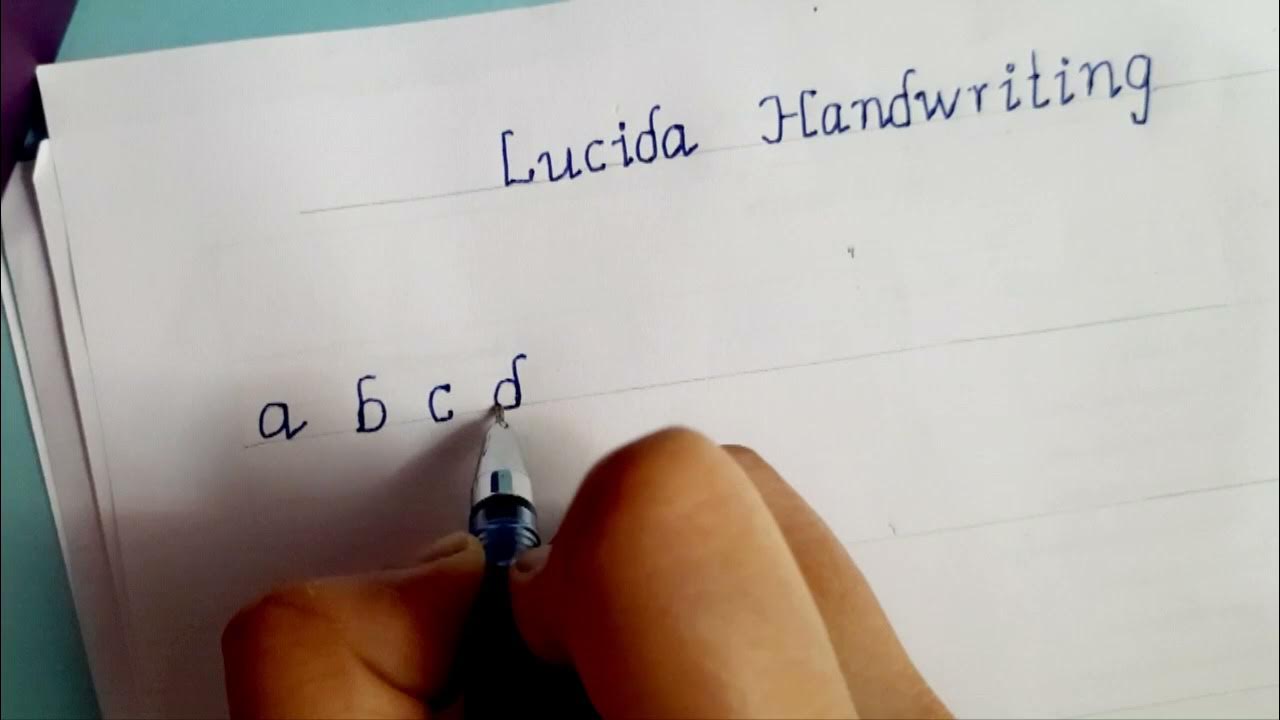 Lucida Handwriting
a b c d